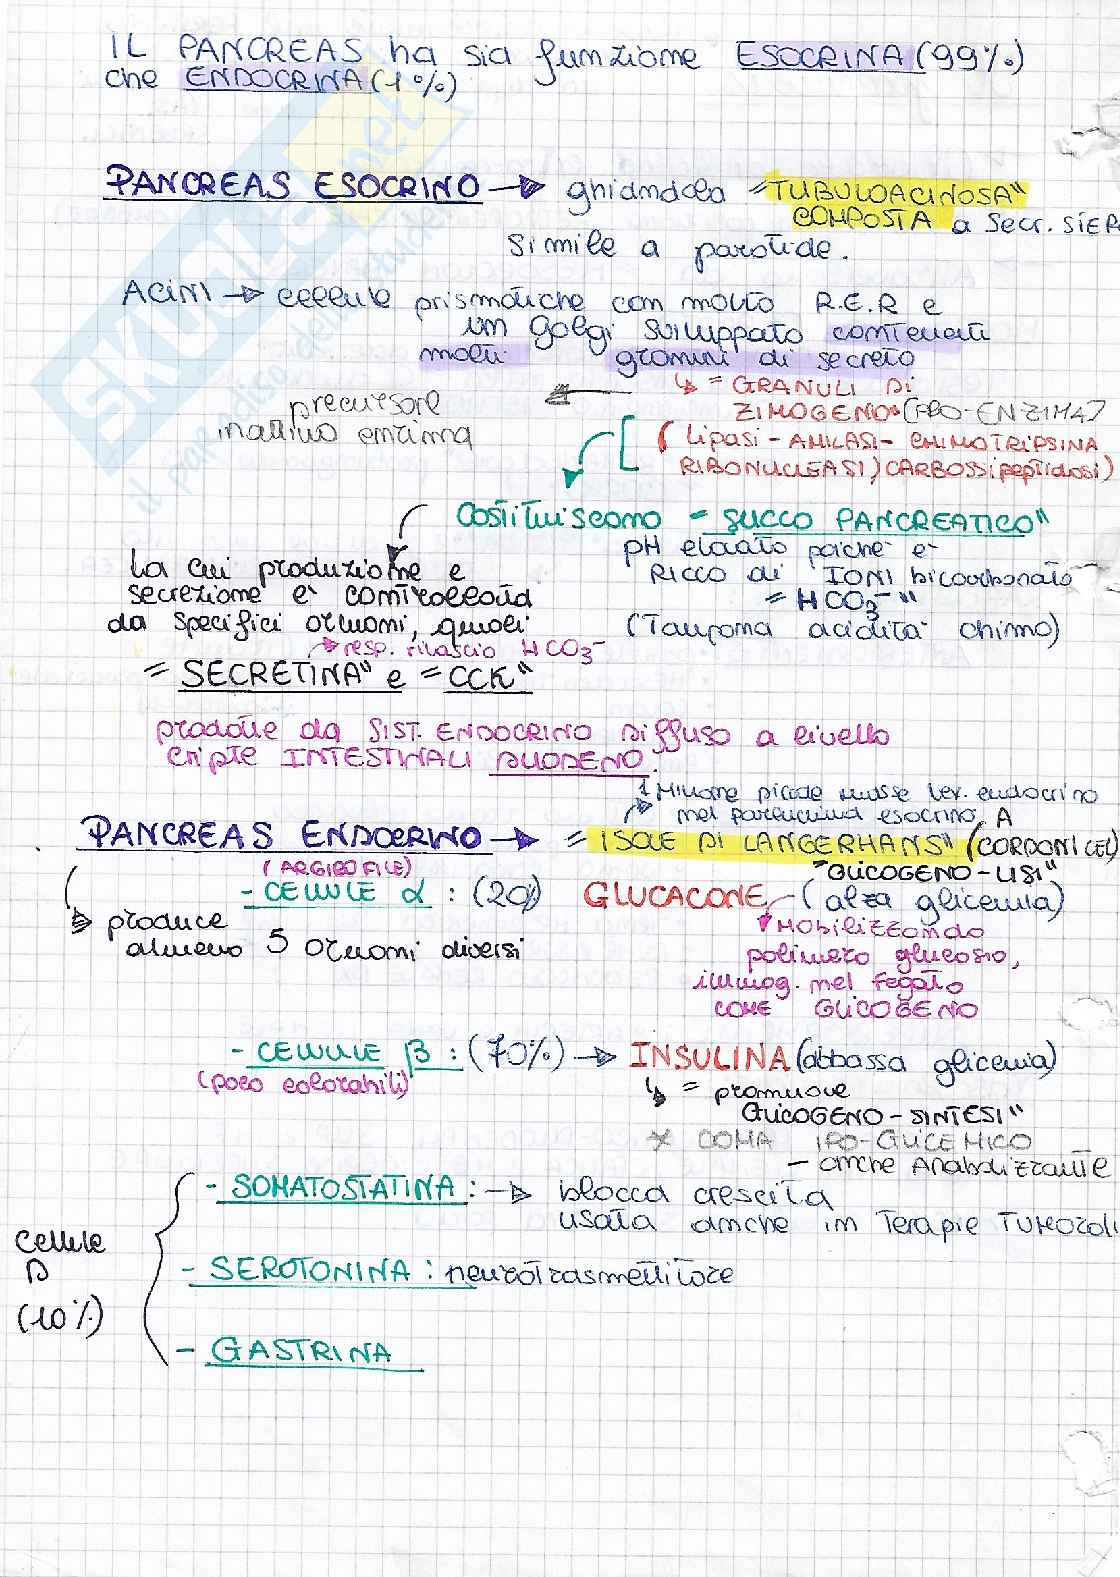 IL PANCREAS ha sia funzione ESOCRINA (99%)
che ENDOCRINA (1%)
PANCREAS ESOCRINO → ghiandola "TUBULOACINOSA"
COMPOSTA a secr. SIER
simile a parotide.
ACINI → cellule prismatiche con molto R.E.R e
un golgi sviluppato contenenti
molti granuli di secreto
↳ = GRANULI DI
ZIMOGENO" (PRO-ENZIMA)
precursore
inattivo enzima
(lipasi - AMILASI - CHIMOTRIPSINA
RIBONUCLEASI, CARBOSSIpeptidasi)
costituiscono "SUCCO PANCREATICO"
pH elevato poiché è
RICCO di IONI bicarbonato
= HCO3⁻"
(Tampona acidità chimo)
La cui produzione e
secrezione è controllata
da specifici ormoni, quali
→ resp. rilascio HCO3⁻
"SECRETINA" e "CCK"
prodotte da SIST. ENDOCRINO DIFFUSO a livello
cripte INTESTINALI DUODENO.
1 Milione piccole masse tex. endocrino
nel parenchima esocrino, A
PANCREAS ENDOCRINO → "ISOLE DI LANGERHANS" (CORDONI CEL)
(ARGIROFILE)
"GLICOGENO-LISI"
- CELLULE α : (20%) GLUCAGONE - (alza glicemia)
→ produce
almeno 5 ormoni diversi
MOBILIZZANDO
polimero glucosio,
immag. nel fegato
COME GLICOGENO
- CELLULE β : (70%) → INSULINA (abbassa glicemia)
(poco colorabili)
↳ = promuove
GLICOGENO-SINTESI"
* COMA IPO-GLICEMICO
- anche Anabolizzante
- SOMATOSTATINA : → blocca crescita
usata anche in Terapie TUMORALI
cellule
D
(10%)
- SEROTONINA : neurotrasmettitore
- GASTRINA
SKUOLA.net
il paradiso dello studente